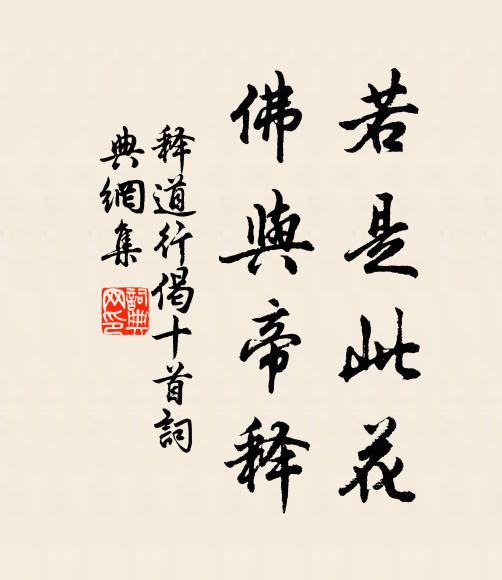 若是此花
佛與帝释
释道行偈十首詞
典網集
詞典
网印